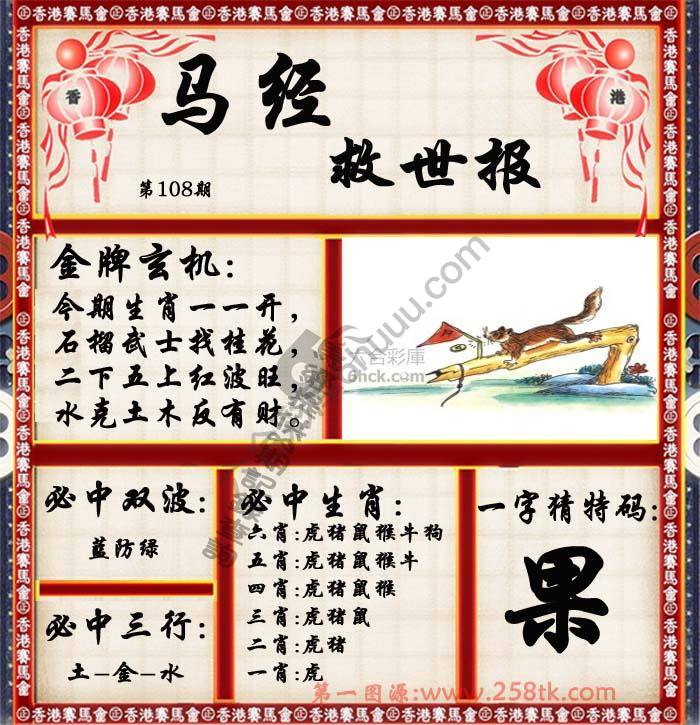 香港賽馬會
香
港
马经
救世报
第108期
金牌玄机:
今期生肖一一开,
石榴武士找桂花,
二下五上红波旺,
水克土木反有财。
六合彩庫
6hck.com
必中双波:
藍防绿
必中三行:
土-金-水
必中生肖:
六肖:虎猪鼠猴牛狗
五肖:虎猪鼠猴牛
四肖:虎猪鼠猴
三肖:虎猪鼠
二肖:虎猪
一肖:虎
一字猜特码:
果
第一图源:www.258tk.com